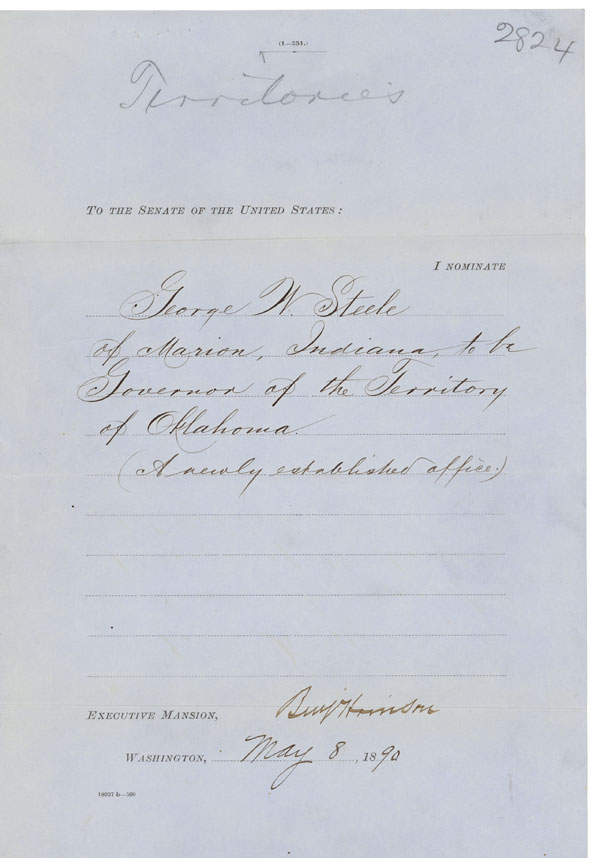 2824
(1—251.)
Territories
To the Senate of the United States:
I nominate
George W. Steele
of Marion, Indiana, to be
Governor of the Territory
of Oklahoma.
(A newly established office.)
Benj Harrison
Executive Mansion,
Washington, May 8, 1890
18037 b—500